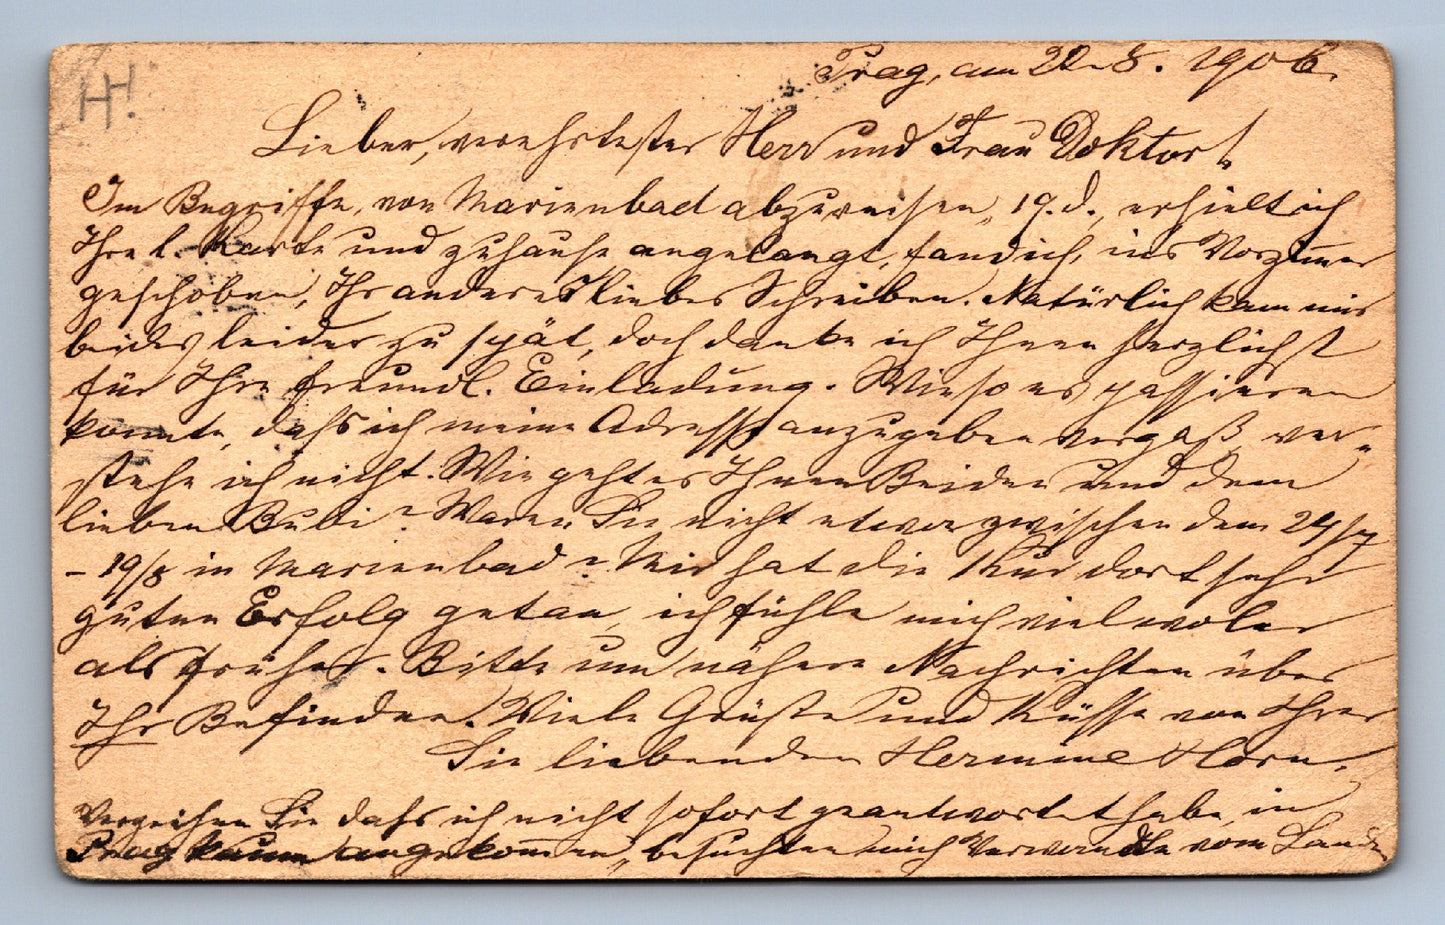 HH!
Prag, am 22.8. 1906.
Lieber, verehrtester Herr und Frau Doktor!
Im Begriffe, von Marienbad abzureisen, 19. d., erhielt ich
Ihre l. Karte und zuhause angelangt, fand ich, ins Vorzimmer
geschoben, Ihr anderes liebes Schreiben. Natürlich kam mir
beides leider zu spät, doch danke ich Ihnen herzlichst
für Ihre freundl. Einladung. Wieso es passieren
konnte, dass ich meine Adresse anzugeben vergaß, ver-
stehe ich nicht. Wie geht es Ihnen Beiden und dem
lieben Bubi? Waren Sie nicht etwa zwischen dem 24/7
- 19/8 in Marienbad? Mir hat die Kur dort sehr
guten Erfolg getan, ich fühle mich viel woler
als früher. Bitte um nähere Nachrichten über
Ihr Befinden. Viele Grüsse und Küsse von Ihrer
Sie liebenden Hermine Horn.
Verzeihen Sie dass ich nicht sofort geantwortet habe, in
Prag kaum angekommen, besuchten mich Verwandte vom Lande